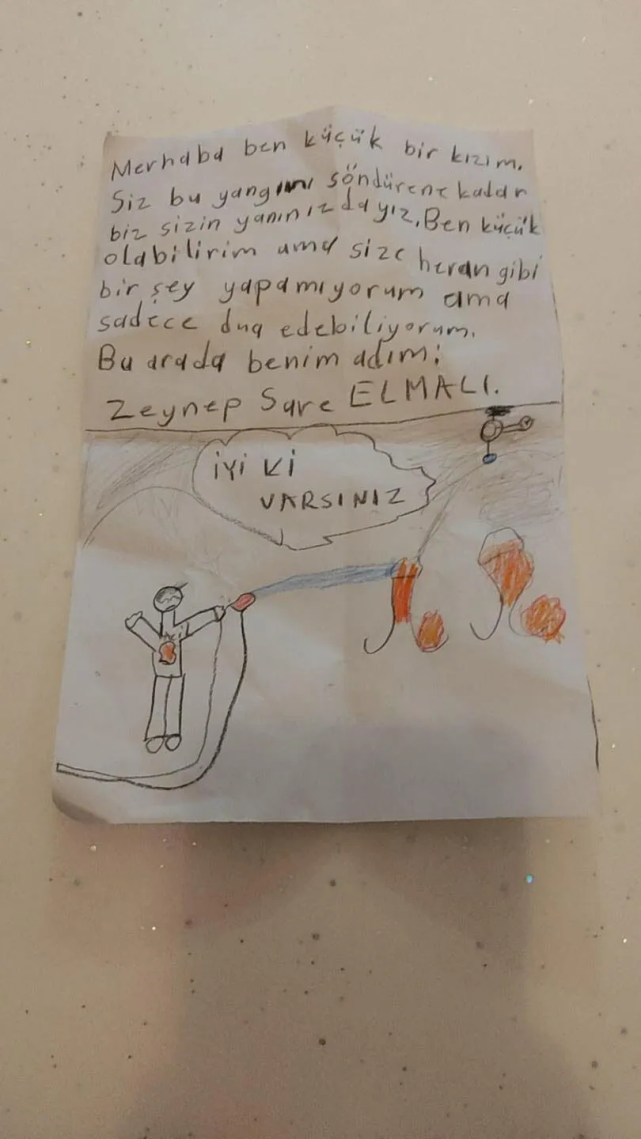 Merhaba ben küçük bir kızım.
Siz bu yangını söndürene kadar
biz sizin yanınızdayız, Ben küçük
olabilirim ama size heran gibi
bir şey yapamıyorum ama
sadece dua edebiliyorum.
Bu arada benim adım:
Zeynep Sare ELMALI.
İYİ Kİ
VARSINIZ